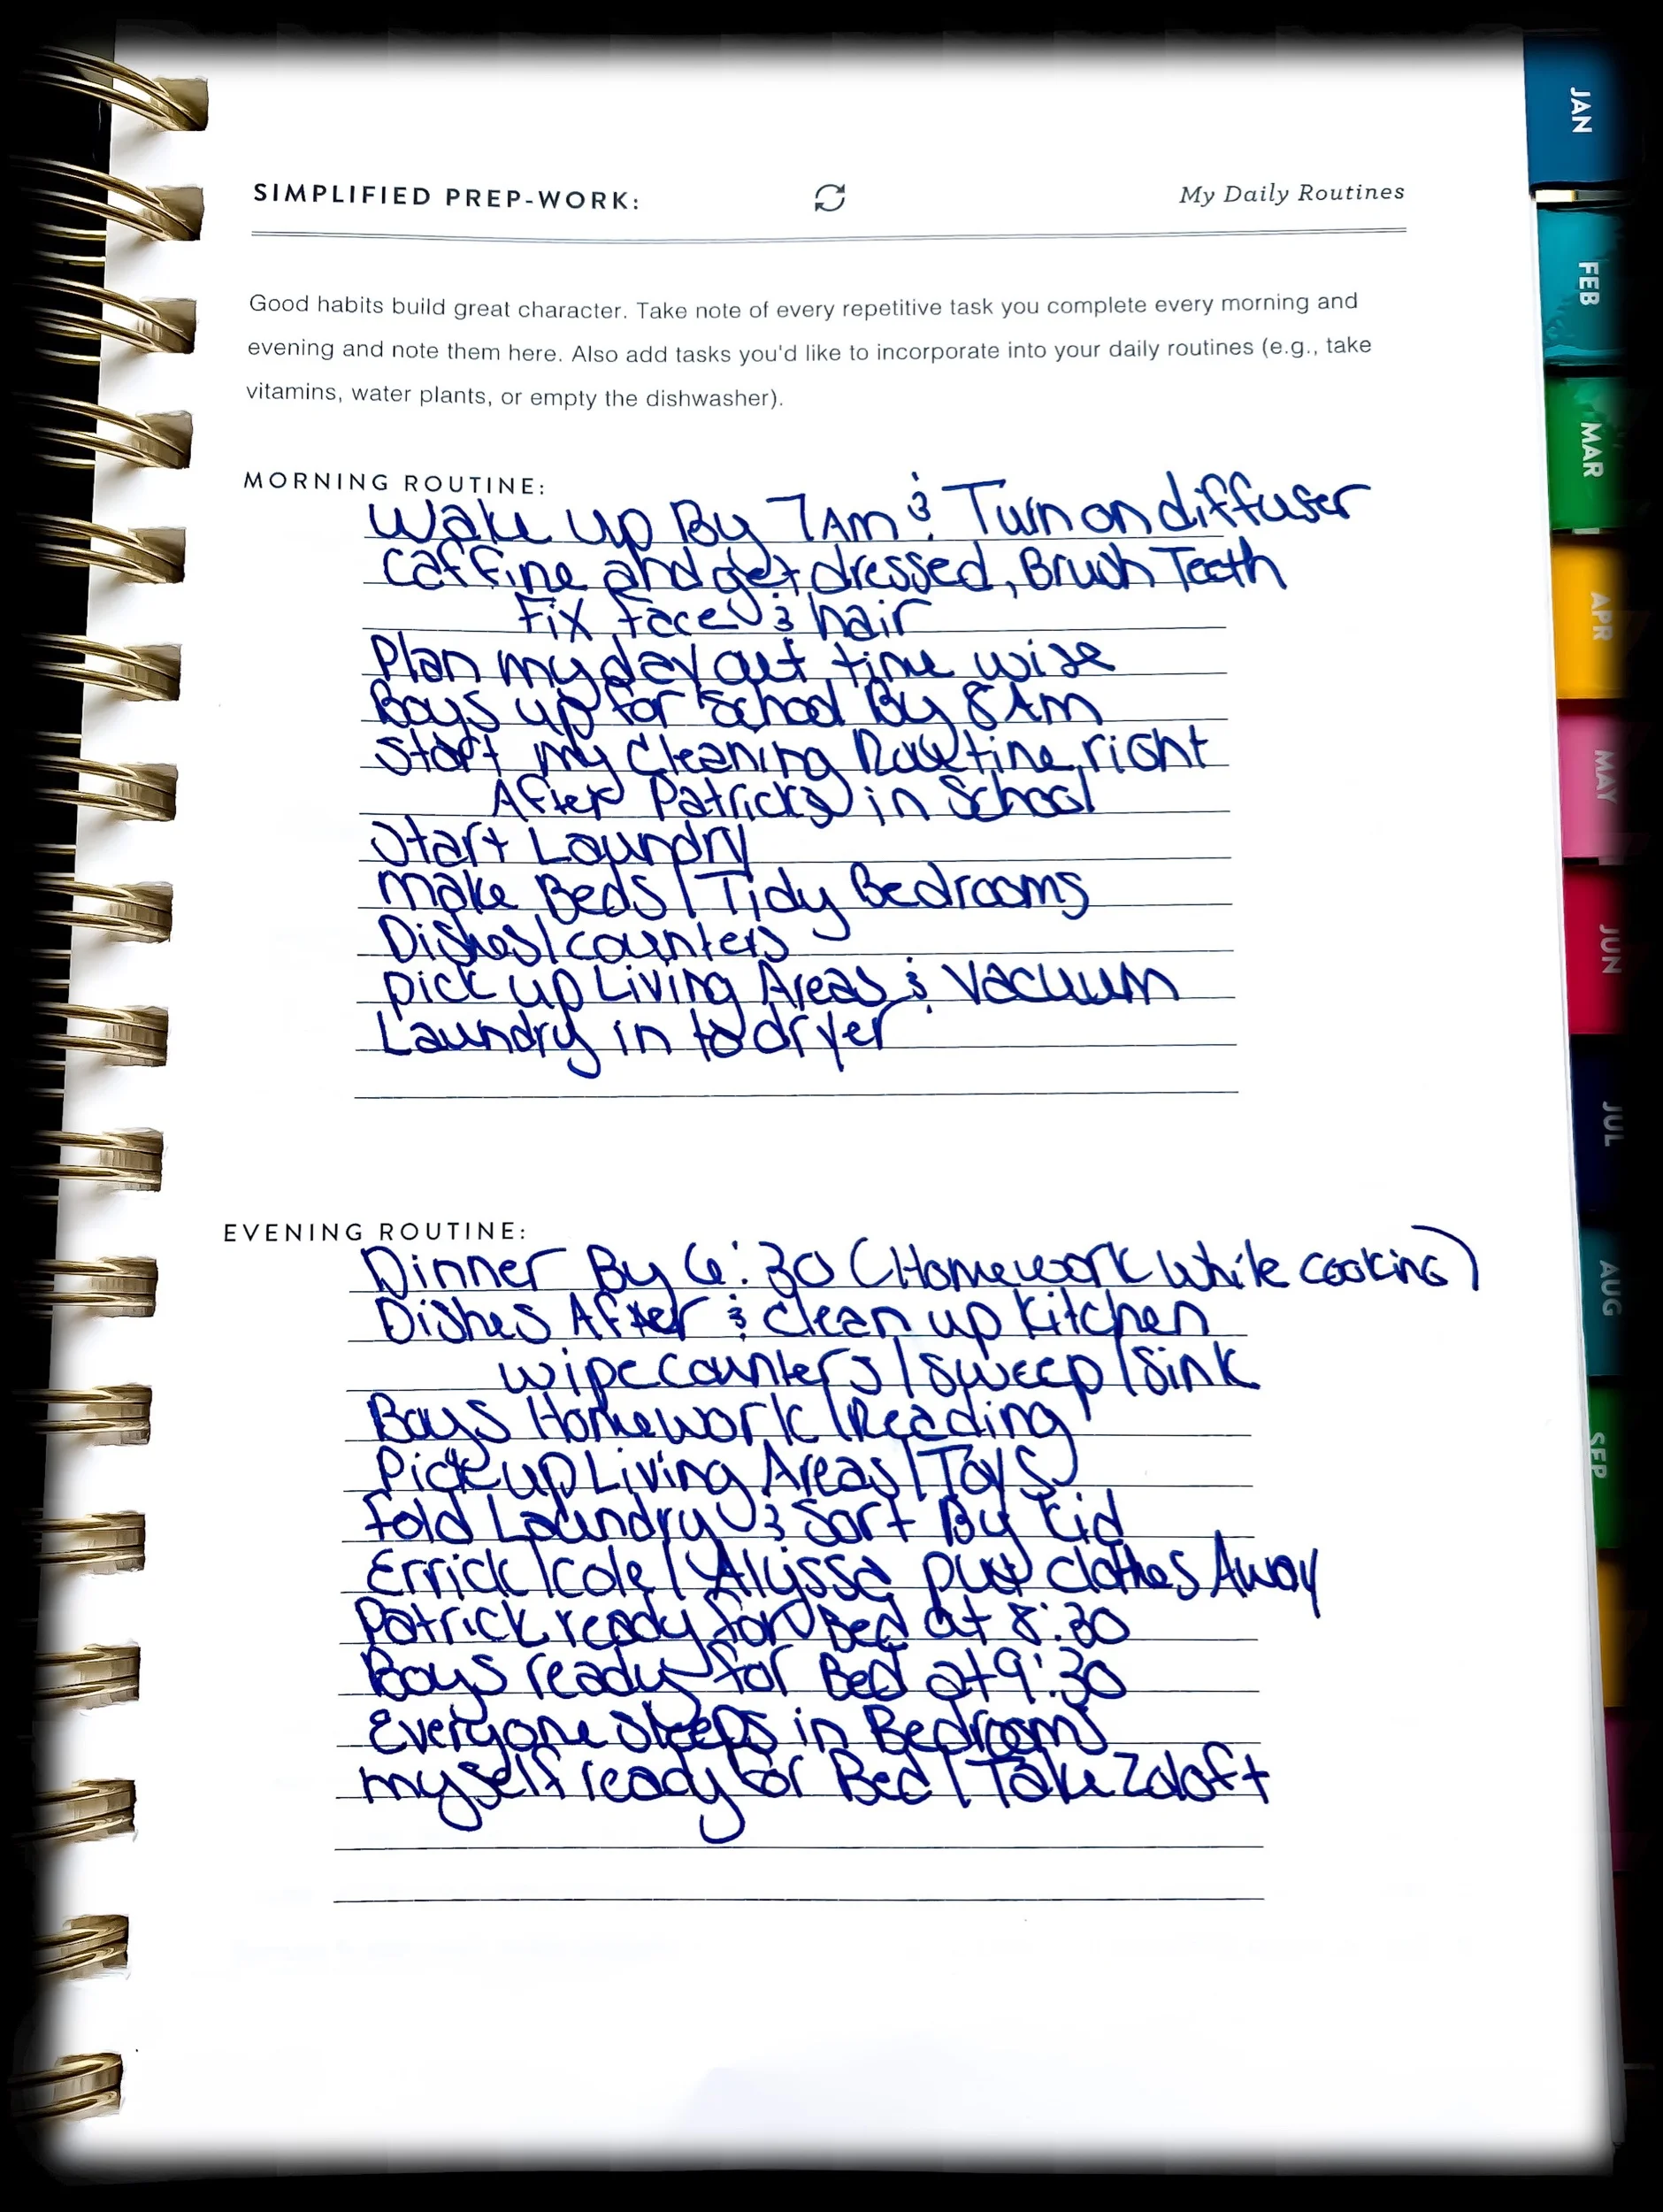 SIMPLIFIED PREP-WORK: My Daily Routines
Good habits build great character. Take note of every repetitive task you complete every morning and
evening and note them here. Also add tasks you'd like to incorporate into your daily routines (e.g., take
vitamins, water plants, or empty the dishwasher).
MORNING ROUTINE:
Wake up By 7AM & Turn on diffuser
Caffine and get dressed, Brush Teeth
Fix face & hair
Plan my day out time wise
Boys up for School By 8AM
Start my Cleaning Routine right
After Patricks in School
Start Laundry
Make Beds / Tidy Bedrooms
Dishes/counters
pick up Living Areas & Vacuum
Laundry in to dryer
EVENING ROUTINE:
Dinner By 6:30 (Homework While cooking)
Dishes After & clean up kitchen
wipe counters / sweep / Sink
Boys Homework / Reading
Pick up Living Areas / Toys
Fold Laundry & Sort By Kid
Errick / Cole / Alyssa put clothes Away
Patrick ready for Bed at 8:30
Boys ready for Bed at 9:30
Everyone Sleeps in Bedrooms
myself ready for Bed / Take Zoloft
JAN
FEB
MAR
APR
MAY
JUN
JUL
AUG
SEP